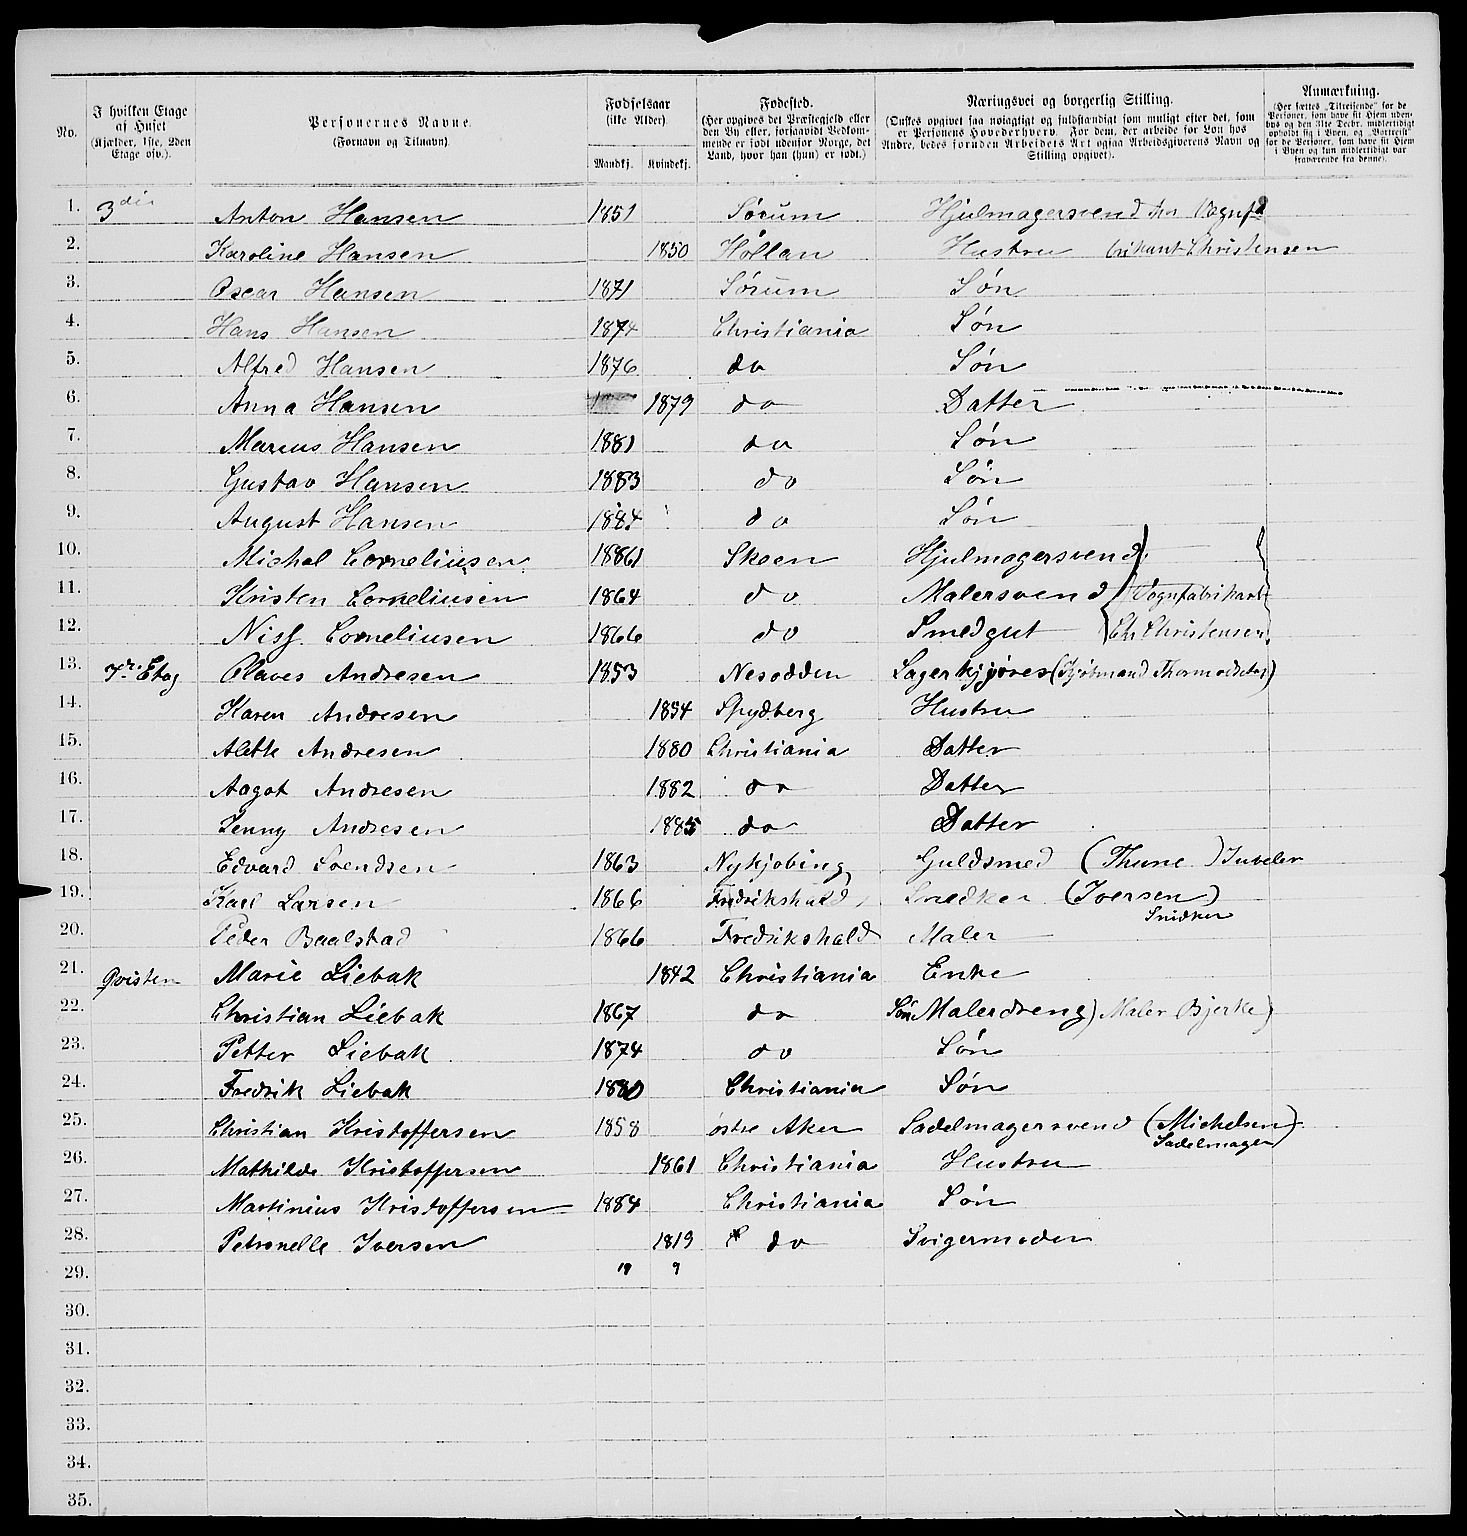 No. | I hvilken Etage af Huset (Kjælder, 1ste, 2den Etage osv.). | Personernes Navne. (Fornavn og Tilnavn). | Fødselsaar (ikke Alder). Mandkj. | Kvindekj. | Fødested. (Her opgives det Præstegjeld eller den By eller, forsaavidt Vedkommende er født udenfor Norge, det Land, hvor han (hun) er født.) | Næringsvei og borgerlig Stilling. (Ønskes opgivet saa nøiagtigt og fuldstændigt som muligt efter det, som er Personens Hovederhverv. For dem, der arbeide for Løn hos Andre, bedes foruden Arbeidets Art ogsaa Arbeidsgiverens Navn og Stilling opgivet). | Anmærkning. (Her sættes „Tilreisende" for de Personer, som have sit Hjem udenbys og den 31te Decbr. midlertidigt opholdt sig i Byen, og „Bortreist" for de Personer, som have sit Hjem i Byen og kun midlertidigt var fraværende fra denne).
1. 3die Anton Hansen 1851 Sørum Hjulmagersvend hos Vognfa
2. Karoline Hansen 1850 Høllan Hustru brikant Christensen
3. Oscar Hansen 1871 Sørum Søn
4. Hans Hansen 1874 Christiania Søn
5. Alfred Hansen 1876 do Søn
6. Anna Hansen 1879 do Datter
7. Marius Hansen 1881 do Søn
8. Gustav Hansen 1883 do Søn
9. August Hansen 1884 do Søn
10. Michal Corneliusen 1861 Skeen Hjulmagersvend
11. Kristen Corneliusen 1864 do Malersvend Vognfabrikant
12. Niss Corneliusen 1866 do Smedgut Ch Christensen
13. Etag Olaves Andresen 1853 Nesodden Lagerkjører
14. Karen Andresen 1854 Spydberg Hustru
15. Alette Andresen 1880 Christiania Datter
16. Aagot Andresen 1882 do Datter
17. Jenny Andresen 1885 do Datter
18. Edvard Svendsen 1863 Nykjøbing Guldsmed (Thune) Juveler
19. Karl Larsen 1866 Fredrikshald Snedker (Iversen) Snidker
20. Peder Baalstad 1866 Fredrikshald Maler
21. Qvisten Marie Liebak 1842 Christiania Enke
22. Christian Liebak 1867 do Søn Malerdreng) Maler Bjerke)
23. Petter Liebak 1874 do Søn
24. Fredrik Liebak 1880 Christiania Søn
25. Christian Kristoffersen 1858 østre Aker Sadelmagersvend (Michelsen) Sadelmager
26. Mathilde Kristoffersen 1861 Christiania Hustru
27. Martinius Kristoffersen 1884 Christiania Søn
28. Petronelle Iversen 1819 do Svigermoder
29. 19 9
30.
31.
32.
33.
34.
35.